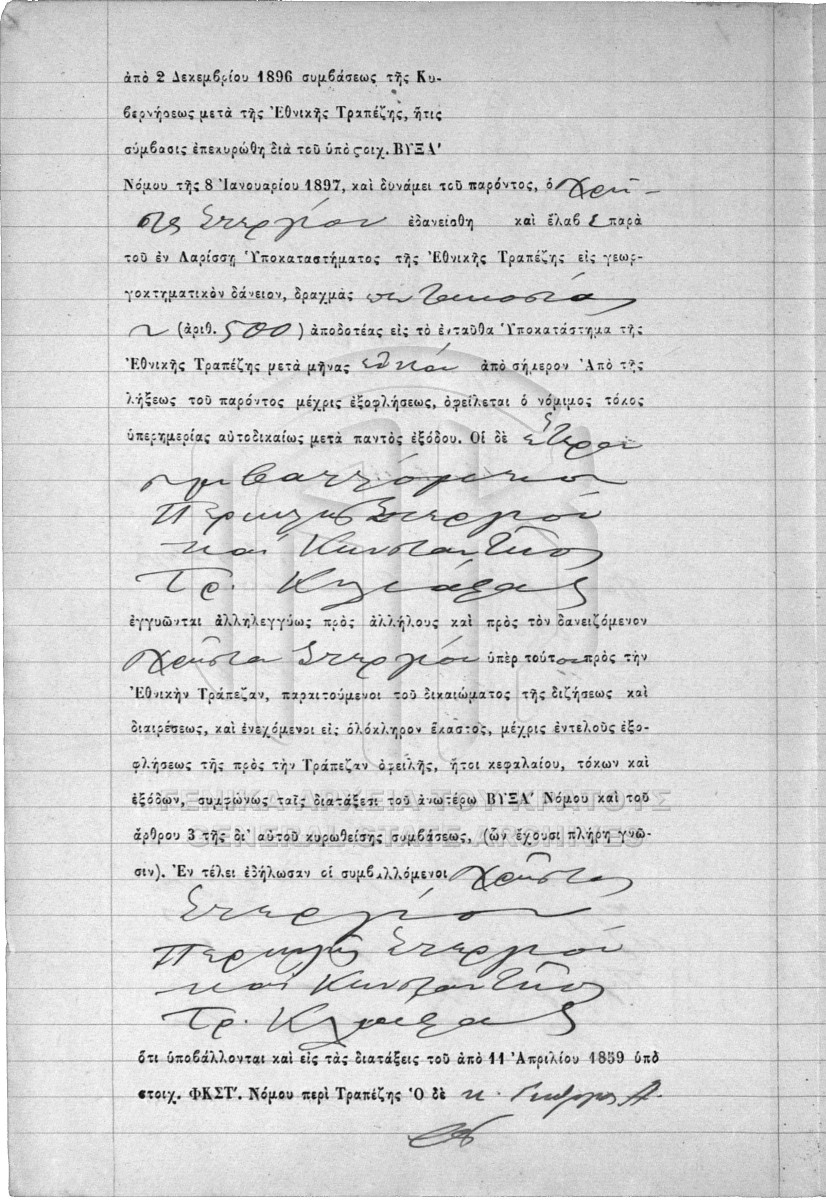 ἀπὸ 2 Δεκεμβρίου 1896 συμβάσεως τῆς Κυ-
βερνήσεως μετὰ τῆς Ἐθνικῆς Τραπέζης, ἥτις
σύμβασις ἐπεκυρώθη διὰ τοῦ ὑπὸ στοιχ. ΒΥΞΑ'
Νόμου τῆς 8 Ἰανουαρίου 1897, καὶ δυνάμει τοῦ παρόντος, ὁ Χρῆ-
στος Στεργίου ἐδανείσθη καὶ ἔλαβε παρὰ
τοῦ ἐν Λαρίσσῃ Ὑποκαταστήματος τῆς Ἐθνικῆς Τραπέζης εἰς γεωρ-
γοκτηματικὸν δάνειον, δραχμὰς πεντακοσίας
(ἀριθ. 500) ἀποδοτέας εἰς τὸ ἐνταῦθα Ὑποκατάστημα τῆς
Ἐθνικῆς Τραπέζης μετὰ μῆνας ἀπὸ σήμερον Ἀπὸ τῆς
λήξεως τοῦ παρόντος μέχρις ἐξοφλήσεως, ὀφείλεται ὁ νόμιμος τόκος
ὑπερημερίας αὐτοδικαίως μετὰ παντὸς ἐξόδου. Οἱ δὲ ἕτεροι
συμβαλλόμενοι
Περικλῆς Στεργίου
καὶ Κωνσταντῖνος
Τρ.
ἐγγυῶνται ἀλληλεγγύως πρὸς ἀλλήλους καὶ πρὸς τὸν δανειζόμενον
Χρῆστον Στεργίου ὑπὲρ τούτου πρὸς τὴν
Ἐθνικὴν Τράπεζαν, παραιτούμενοι τοῦ δικαιώματος τῆς διζήσεως καὶ
διαιρέσεως, καὶ ἐνεχόμενοι εἰς ὁλόκληρον ἕκαστος, μέχρις ἐντελοῦς ἐξο-
φλήσεως τῆς πρὸς τὴν Τράπεζαν ὀφειλῆς, ἤτοι κεφαλαίου, τόκων καὶ
ΓΕΝΙΚΑ ΑΡΧΕΙΑ ΤΟΥ ΚΡΑΤΟΥΣ
ἐξόδων, συμφώνως ταῖς διατάξεσι τοῦ ἀνωτέρω ΒΥΞΑ' Νόμου καὶ τοῦ
GENERAL STATE ARCHIVES
ἄρθρου 3 τῆς δι' αὐτοῦ κυρωθείσης συμβάσεως, (ὧν ἔχουσι πλήρη γνῶ-
σιν). Ἐν τέλει ἐδήλωσαν οἱ συμβαλλόμενοι Χρῆστος
Στεργίου
Περικλῆς Στεργίου
καὶ Κωνσταντῖνος
Τρ.
ὅτι ὑποβάλλονται καὶ εἰς τὰς διατάξεις τοῦ ἀπὸ 11 Ἀπριλίου 1859 ὑπὸ
στοιχ. ΦΚΣΤ'. Νόμου περὶ Τραπέζης Ὁ δὲ κ. Γεώργιος Α.